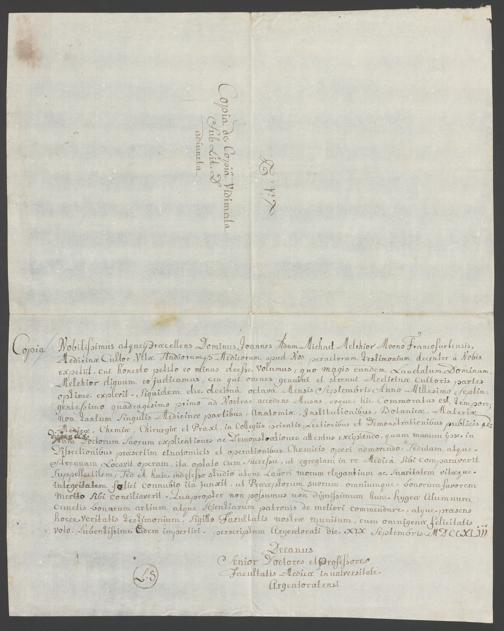 Copia de Copia Vidimata
Sub Lit. D
adiuncta
Copia
Nobilissimus atque Praecellens Dominus, Joannes Michael Melchior Moeno Francofurtensis,
Medicinae Cultor Vitae Studiorumq Medicorum apud Nos peractorum Testimonium decenter a Nobis
expetiit. cui honesto petito eo minus deesse volumus, quo magis eundem Laudatum Dominum
Melchior dignum eo judicamus, cui omnes genuini et strenui Medicinae Cultoris partes
optime explevit. Siquidem die decima octava Mensis Septembris Anno Millesimo Septin
gentesimo quadragesimo primo ad Nostras accedens Musas, eoque hic Commoratus est Tempore
non tantum Singulis Medicinae partibus Anatomiae, Institutionibus Botanicae, Materiae
Medicae, Chemiae, Chirurgiae et Praxi, in Collegiis privatis, Lectionibus et Demonstrationibus publicis
Doctorum Suorum explicationes ac Demonstrationes attentus excipiendo, quam manum ipse in
Dissectionibus praesertim anatomicis et operationibus Chemicis operi admovendo Sedulam atque
Strenuam Locavit operam, ita optato cum Successu, ut egregiam in re Medica Sibi comparaverit
Suppellectilem, Sed et huic indefesso studio atque Labori morum elegantiam ac Suavitatem vitaeque
integritatem felici connubio ita junxit, ut Praeceptorum suorum omniumque bonorum favorem
merito Sibi conciliaverit. Quapropter non possumus non dignissimum hunc hygeae Alumnum
cunctis bonarum artium atque Scientiarum patronis de meliori commendare, atque praesens
hocce Veritatis Testimonium, Sigillo Facultatis nostrae munitum, cum omnigenae felicitatis
voto Lubentissime Eidem impertiri. perscriptum Argentorati die XIX Septembris MDCCXLIII
Decanus
Senior Doctores et Professores
Facultatis Medicae in universitate
Argentoratensi
L.S